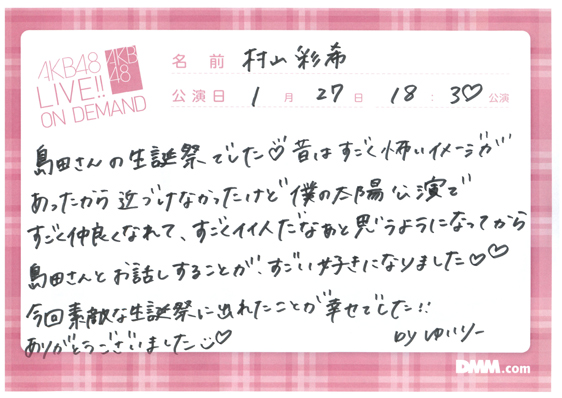 AKB48
LIVE!!
ON DEMAND
AKB
48
名前 村山彩希
公演日 1月27日 18:30公演
島田さんの生誕祭でした♡昔はすごく怖いイメージが
あったから近づけなかったけど僕の太陽公演で
すごく仲良くなれて、すごくイイ人だなぁと思うようになってから
島田さんとお話しすることが、すごい好きになりました♡♡
今回素敵な生誕祭に出れたことが幸せでした!!
ありがとうございました♡
by ゆいりー
DMM.com